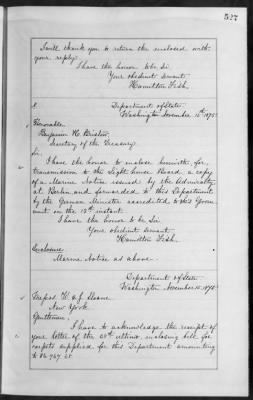 527
I will thank you to return the enclosed with
your reply.
I have the honor to be Sir
Your obedient servant
Hamilton Fish.
Department of State
Washington November 15th 1875
Honorable
Benjamin H. Bristow,
Secretary of the Treasury
Sir
I have the honor to enclose herewith, for
transmission to the Light house Board, a copy
of a Marine Notice issued by the Admiralty
at Berlin and forwarded to this Department
by the German Minister accredited to this Govern
ment on the 13th instant.
I have the honor to be Sir
Your obedient servant
Hamilton Fish.
Enclosure.
Marine Notice as above.
Department of State
Washington November 15, 1875
Messrs. W. & J. Sloane
New York.
Gentlemen,
I have to acknowledge the receipt of
your letter of the ultimo, enclosing bill for
carpets supplied for this Department amounting
to